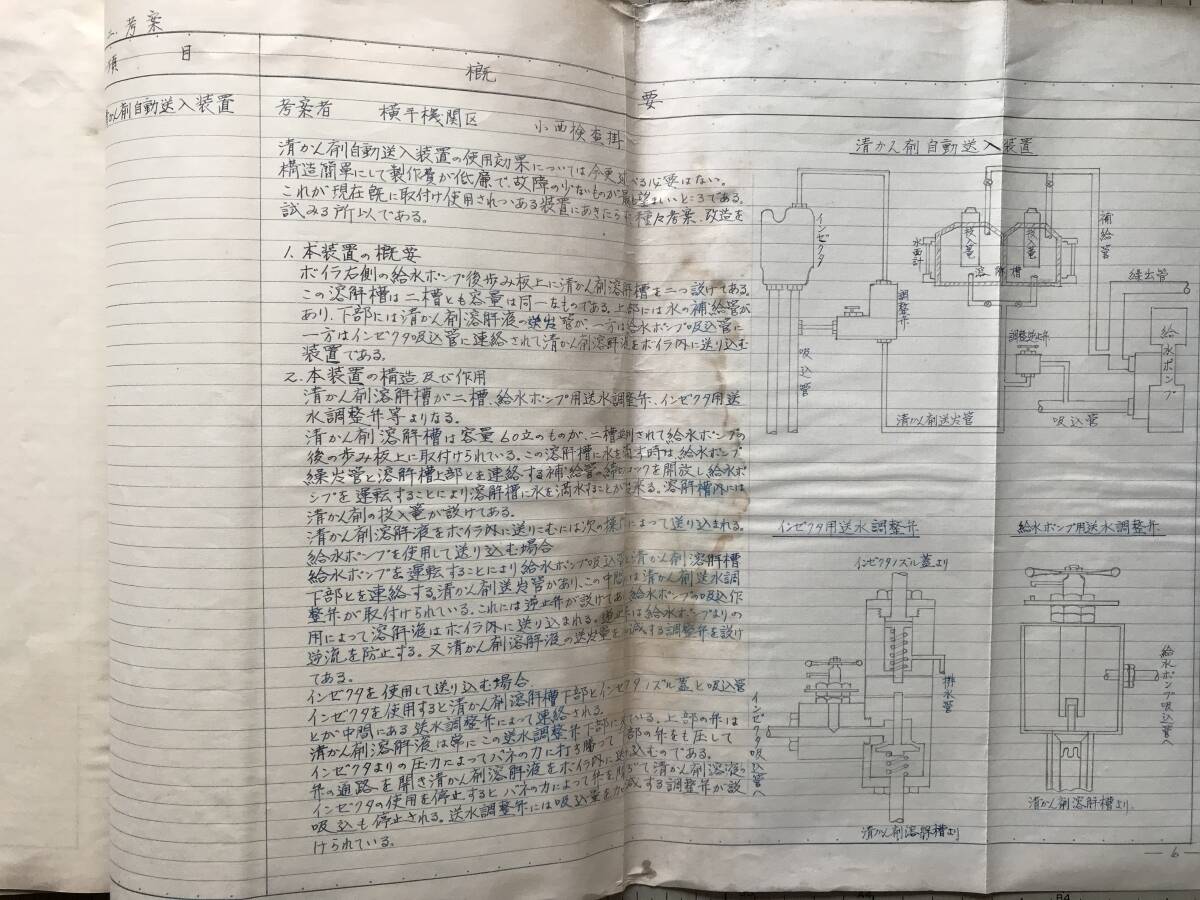 二、考案
項 目
概 要
清かん剤自動送入装置
考案者 横手機関区 小西検査掛
清かん剤自動送入装置の使用効果については今更述べる必要はない。
構造簡単にして製作費が低廉で、故障の少ないものが最も望ましいところである。
これが現在既に取付け使用されつつある装置にあきたらず種々考案、改造を
試みる所以である。
1. 本装置の概要
ボイラ右側の給水ポンプ後歩み板上に清かん剤溶解槽を二つ設けてある。
この溶解槽は二槽とも容量は同一なものである。上部には水の補給管が
あり、下部には清かん剤溶解液の送出管が、一方は給水ポンプ吸込管に
一方はインゼクタ吸込管に連絡されて清かん剤溶解液をボイラ内に送り込む
装置である。
2. 本装置の構造及び作用
清かん剤溶解槽が二槽、給水ポンプ用送水調整弁、インゼクタ用送
水調整弁等よりなる。
清かん剤溶解槽は容量60立のものが、二槽並列されて給水ポンプの
後の歩み板上に取付けられている。この溶解槽に水を満す時は、給水ポンプ
繰出管と溶解槽上部とを連絡する補給管、締切コックを開放し、給水ポ
ンプを運転することにより溶解槽に水を満水することが出来る。溶解槽内には
清かん剤の投入篭が設けてある。
清かん剤溶解液をボイラ内に送りこむには次の操作によって送り込まれる。
給水ポンプを使用して送り込む場合
給水ポンプを運転することにより給水ポンプ吸込管と清かん剤溶解槽
下部とを連絡する清かん剤送出管があり、この中間は清かん剤送水調
整弁が取付けられている。これには逆止弁が設けてあり給水ポンプの吸込作
用によって溶解液はボイラ内に送り込まれる。逆止弁は給水ポンプよりの
逆流を防止する。又清かん剤溶解液の送出量を加減する調整弁を設け
てある。
インゼクタを使用して送り込む場合
インゼクタを使用すると清かん剤溶解槽下部とインゼクタノズル蓋と吸込管
とが中間にある送水調整弁によって連絡される。
清かん剤溶解液は常にこの送水調整弁下部に来ている。上部の弁は
インゼクタよりの圧力によってバネの力に打ち勝って下部の弁をも圧して
弁の通路を開き清かん剤溶解液をボイラ内に送り込むのである。
インゼクタの使用を停止するとバネの力によって弁を閉じて清かん剤溶液の
吸込も停止される。送水調整弁には吸込量を加減する調整弁が設
けられている。
清かん剤自動送入装置
インゼクタ
吸込管
調整弁
水面計
投入篭
投入篭
溶解槽
補給管
繰出管
調整逆止弁
給水ポンプ
吸込管
清かん剤送出管
インゼクタ用送水調整弁
インゼクタノズル蓋より
排水管
インゼクタ吸込管へ
清かん剤溶解槽より
給水ポンプ用送水調整弁
給水ポンプ吸込管へ
清かん剤溶解槽より
— 6